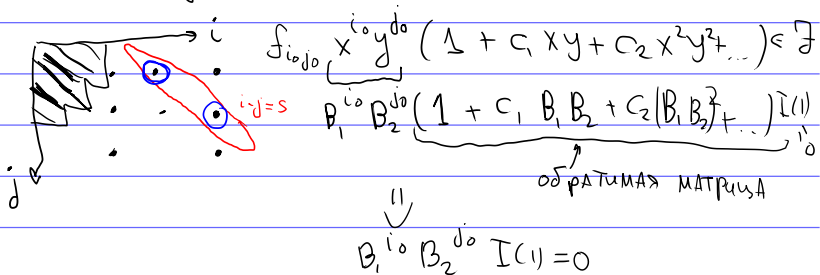 i
f_{i₀j₀} x^{i₀} y^{j₀} (1 + c₁ xy + c₂ x²y² + ...) ∈ J
i-j=s
B₁^{i₀} B₂^{j₀} (1 + c₁ B₁ B₂ + c₂ (B₁B₂)² + ...) I(1)
=0
j
обратимая матрица
⇓
B₁^{i₀} B₂^{j₀} I(1) = 0